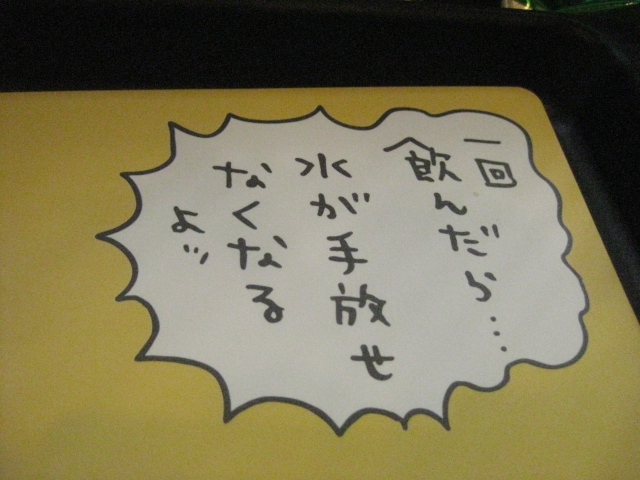 一回
飲んだら…
水が手放せ
なくなる
よッ